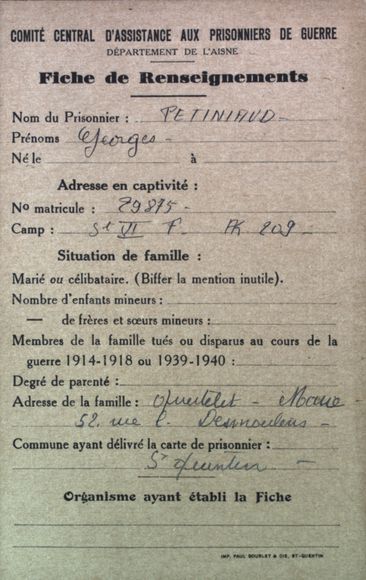 COMITÉ CENTRAL D'ASSISTANCE AUX PRISONNIERS DE GUERRE
DÉPARTEMENT DE L'AISNE
Fiche de Renseignements
Nom du Prisonnier : PETINIAUD -
Prénoms Georges -
Né le à
Adresse en captivité :
No matricule : 29875 -
Camp : St VI F. AK 209 -
Situation de famille :
Marié ou célibataire. (Biffer la mention inutile).
Nombre d'enfants mineurs :
— de frères et sœurs mineurs :
Membres de la famille tués ou disparus au cours de la
guerre 1914-1918 ou 1939-1940 :
Degré de parenté :
Adresse de la famille : - Marie -
52. rue C. Desmoulins -
Commune ayant délivré la carte de prisonnier :
St Quentin -
Organisme ayant établi la Fiche
IMP. PAUL DOURLET & CIE, ST-QUENTIN